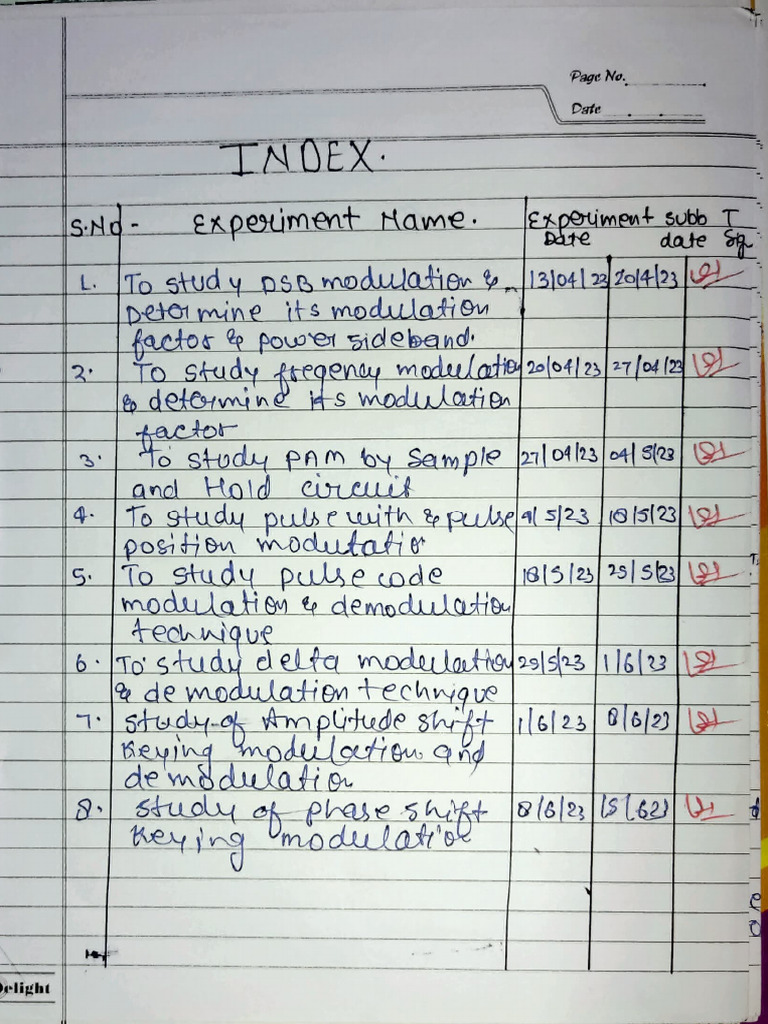 Page No.
Date
INDEX.
S.No - Experiment Name. Experiment subb T
Date date Sg
1. To study DSB modulation & 13/04/23 20/4/23
Determine its modulation
factor & power sideband.
2. To study freqency modulation 20/04/23 27/04/23
& determine its modulation
factor
3. To study PAM by Sample 27/04/23 04/5/23
and Hold circuit
4. To study pulse with & pulse 9/5/23 18/5/23
position modutatio
5. To study pulse code 18/5/23 25/5/23
modulation & demodulation
technique
6. To study delta modulation 25/5/23 1/6/23
& de modulation technique
7. Study of Amplitude shift 1/6/23 8/6/23
Keying modulation and
demodulation
8. study of phase shift 8/6/23
Keying modulation
Delight